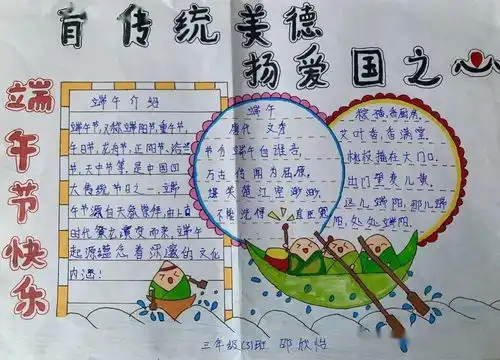 育传统美德
扬爱国之心
端午节快乐
端午介绍
端午节,又称端阳节,重午节,
午日节,龙舟节,正阳节,浴兰
节,天中节等,是中国四
大传统节日之一,端
午节源自天象崇拜,由上古
时代祭龙演变而来,端午
起源蕴念着深邃的文化
内涵!
端午
唐代 文秀
节分端午自谁言,
万古传闻为屈原,
堪笑楚江空渺渺,
不能洗得直臣冤
粽稍,香厨房,
艾叶香,香满堂,
桃枝插在大门口,
出门望麦儿黄,
这儿端阳,那儿端
阳,处处端阳.
三年级(3)班 邵欣怡